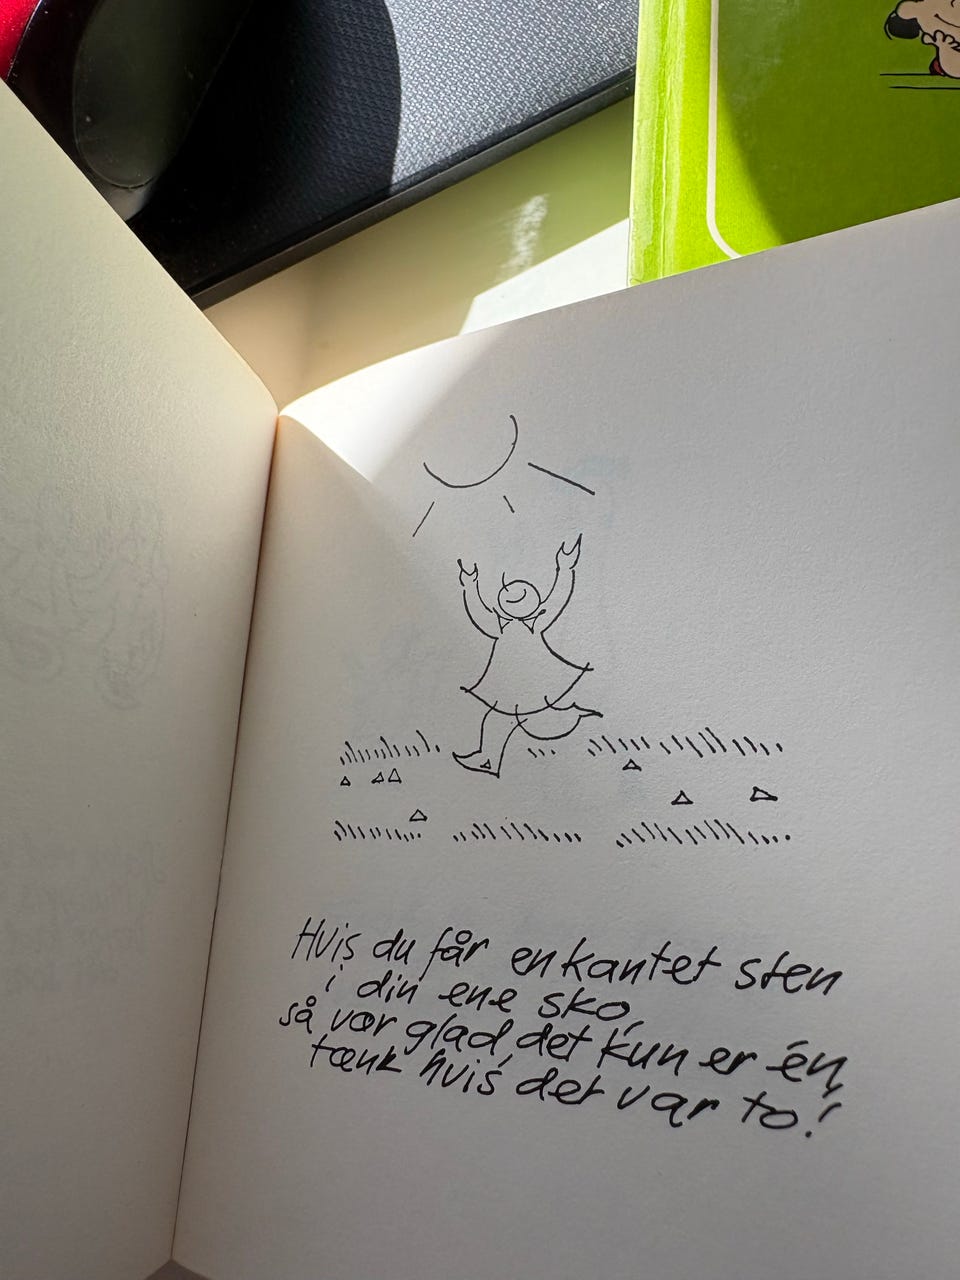 Hvis du får en kantet sten
i din ene sko,
så vær glad, det kun er én,
tænk hvis det var to!